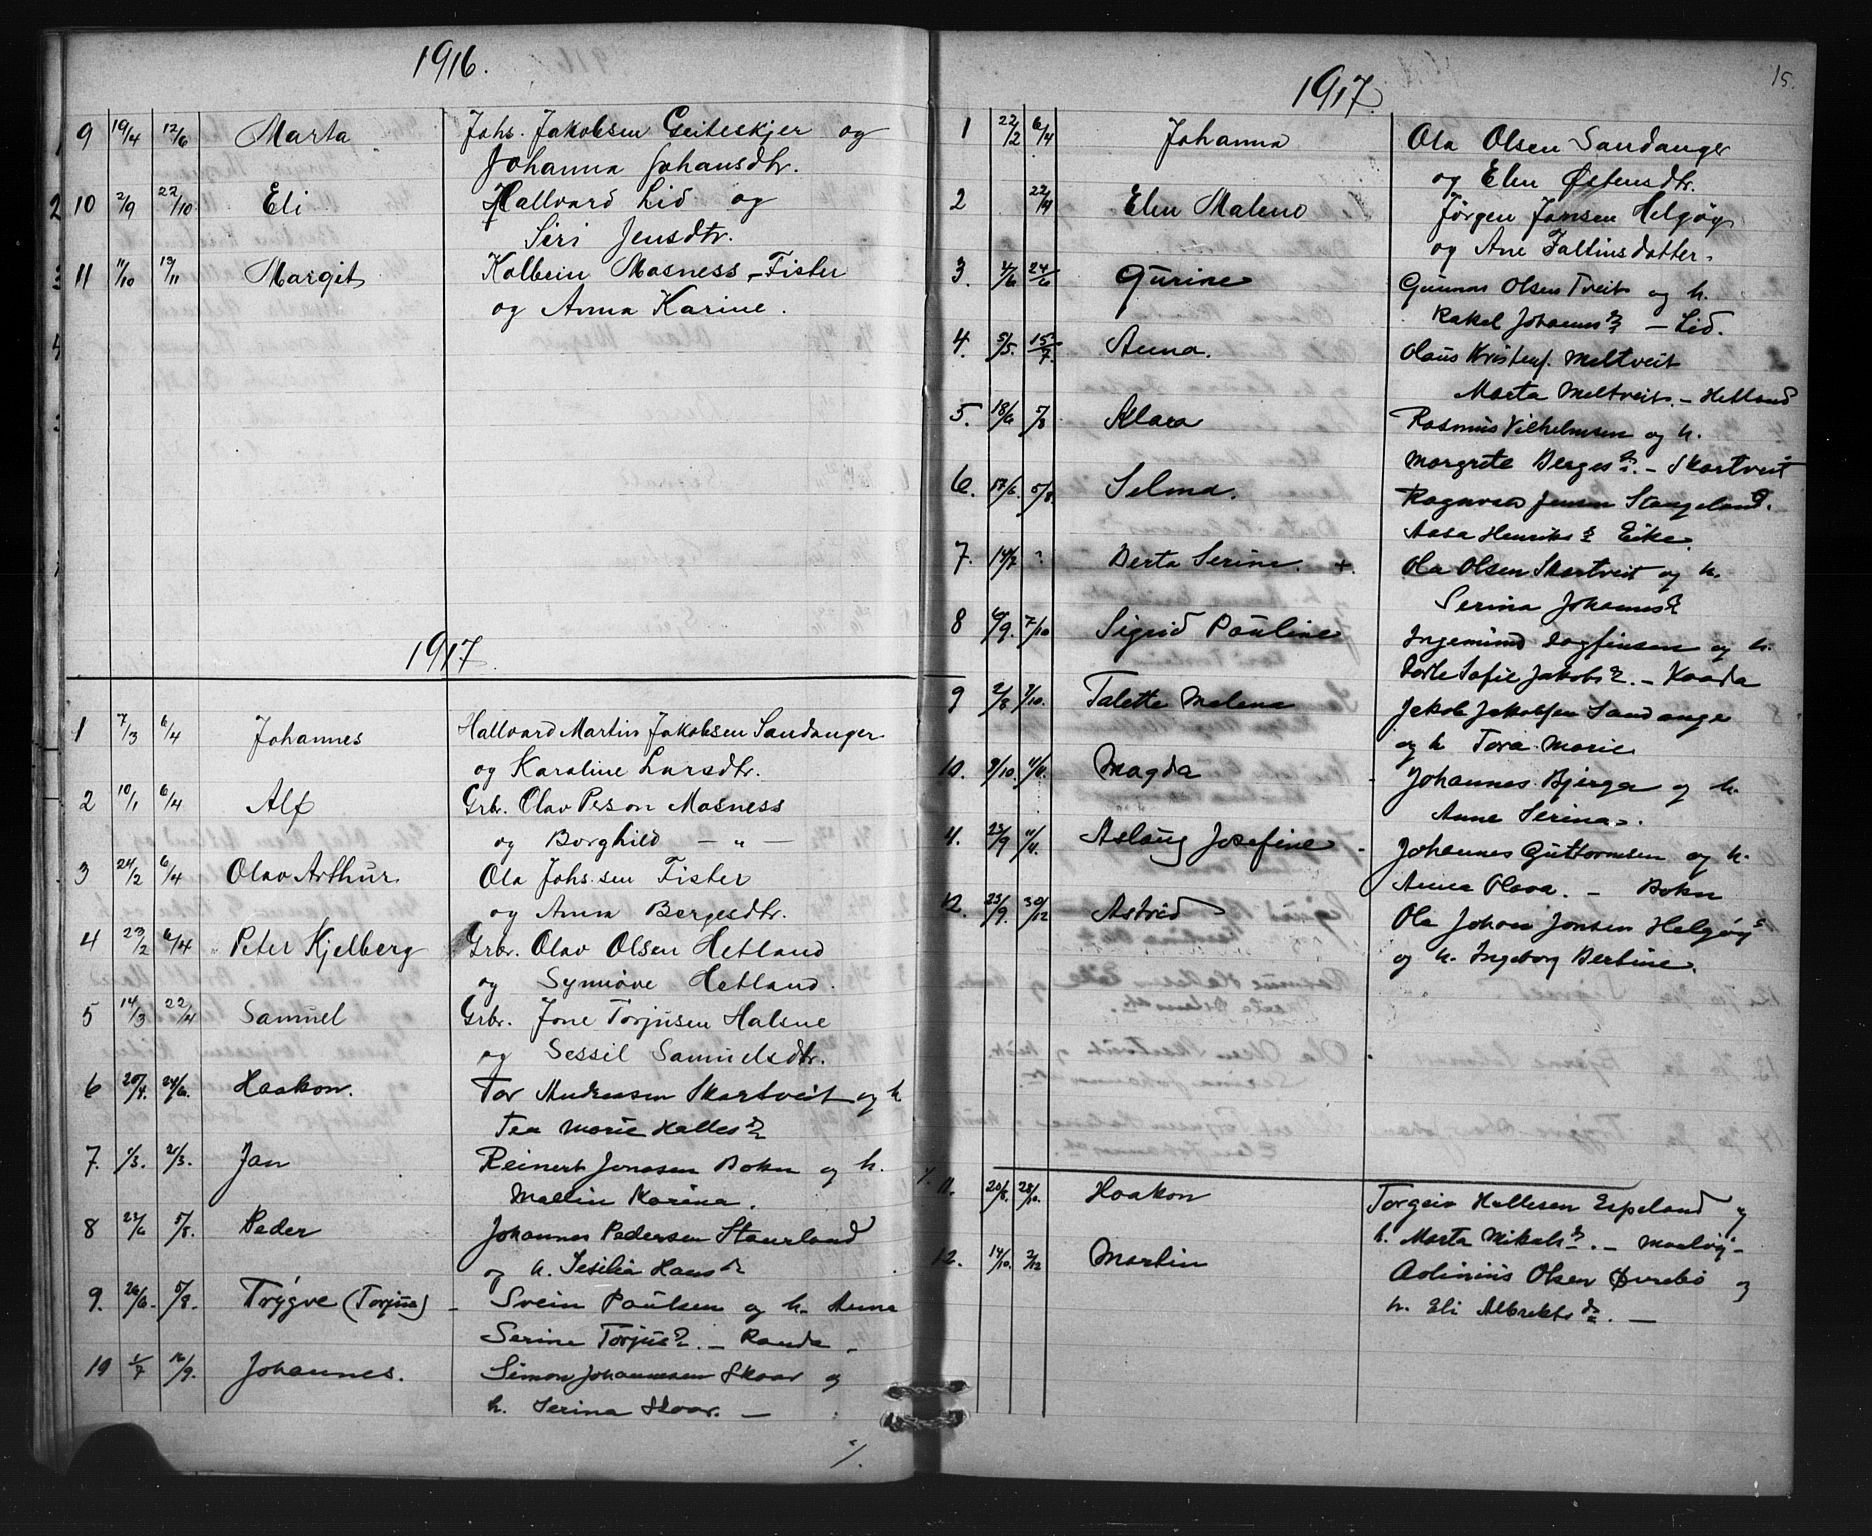 1916.
9 19/4 12/6 Marta Johs. Jakobsen Geiteskjer og
Johanna Johansdtr.
10 2/9 22/10 Eli Hallvard Lid og
Siri Jensdtr.
11 11/10 19/11 Margit Kolbein Masness - Fister
og Anna Karine.
1917.
1 7/3 6/4 Johannes Hallvard Martin Jakobsen Sandanger
og Karoline Larsdtr.
2 10/1 6/4 Alf Grb. Olav Person Masness
og Borghild — " —
3 24/2 6/4 Olav Arthur Ola Johs.sen Fister
og Anna Bergesdtr.
4 23/2 6/4 Peter Kjelberg Grb. Olav Olsen Hetland
og Synnöve Hetland.
5 14/3 22/4 Samuel Grbr. Jone Torjusen Halsne
og Sessil Samuelsdtr.
6 20/4. 24/6. Haakon. Tor Andreasen Skartveit og h
Tea Marie Halles
7. 1/3. 21/3. Jan Reinert Jonasen Bokn og h.
Mallin Karina.
8 22/6 5/8. Peder Johannes Pedersen Staurland
og h. Sesilia Hans
9. 26/6. 5/8. Trygve (Torjus) - Svein Paulsen og h. Anna
Serine Torjus. - Randa.
10 1/7 16/9. Johannes. Simon Johannesen Skaar og
h. Serina Skaar. —
15.
1917.
1 22/2 6/4 Johanna Ola Olsen Sandanger
og Elen Östensdtr.
2 22/4 Elen Malene Jörgen Jansen Helgöy
og Ane Faltinsdatter.
3. 4/6 24/6 Gurine Gunnar Olsen Tveit og h.
Rakel Johannes — Lid.
4. 5/5. 15/7. Anna. Olaus Kristens. Meltveit
Marta Meltveit. - Hetland
5. 18/6 5/8 Klara Rasmus Vilhelmsen og h.
Margrete Berges. - Skartveit
6. 17/6. 5/8. Selma. Ragnvald Jensen Stangeland.
Aasa Henriks Eike.
7. 14/7 ? Berta Serine. +. Ola Olsen Skartveit og h.
Serina Johannes
8 6/9. 7/10 Sigrid Pauline Ingemund Dagfinsen og h.
Sofie Jakobs. - Kaada
9 2/8 7/10. Talette Malene Jakob Jakobsen Sandange
og h Tora Marie
10. 9/10. 11/11. Magda Johannes Bjerga og h.
Anne Serina.
11. 22/9 11/11. Aslaug Josefine Johannes Guttormsen og h.
Anna Olava. — Bokn
12. 23/9. 30/12 Astrid Ole Johan Jonsen Helgöy
og h. Ingeborg Bertine.
11. 20/8. 28/10. Haakon Torgeir Hallesen Espeland og
h. Marta Mikals. -
12. 14/10. 2/12 Martin Adinius Olsen Øvrebö og
h. Eli Albrekts. —